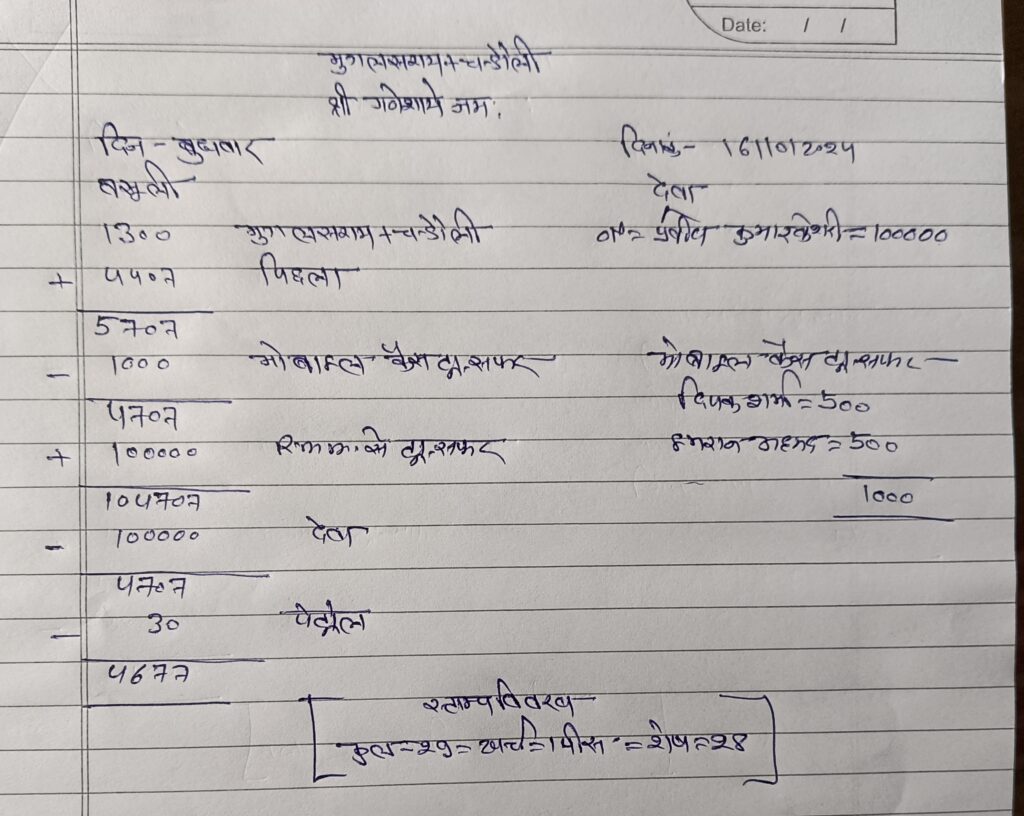 Date: / /
मुगलसराय+चन्डोली
श्री गनेशाये नमः
दिन - बुधवार दिनांक- 16/10/2024
वसूली देवा
1300 मुगलसराय+चन्डोली कुमार = 100000
+ 4407 पिछला
5707
- 1000 मोबाइल कैस ट्रान्सफर मोबाइल कैस ट्रान्सफर -
4707 दिपक शर्मा = 500
+ 100000 से ट्रान्सफर इमरान अहमद = 500
104707 1000
- 100000 देवा
4707
- 30 पेट्रोल
4677
स्टाम्प विवरण
कुल = २९ = खर्च = 1 पीस = शेष = २८